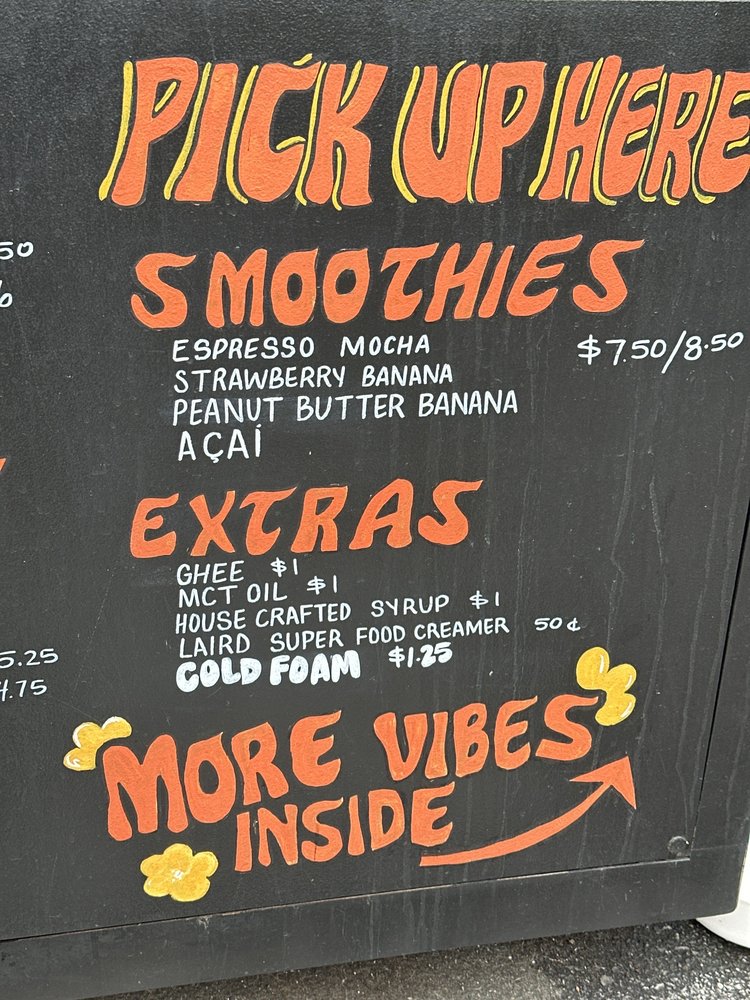 PICK UP HERE
SMOOTHIES
ESPRESSO MOCHA $7.50/8.50
STRAWBERRY BANANA
PEANUT BUTTER BANANA
AÇAÍ
EXTRAS
GHEE $1
MCT OIL $1
HOUSE CRAFTED SYRUP $1
LAIRD SUPER FOOD CREAMER 50¢
COLD FOAM $1.25
MORE VIBES
INSIDE
50
5.25
4.75